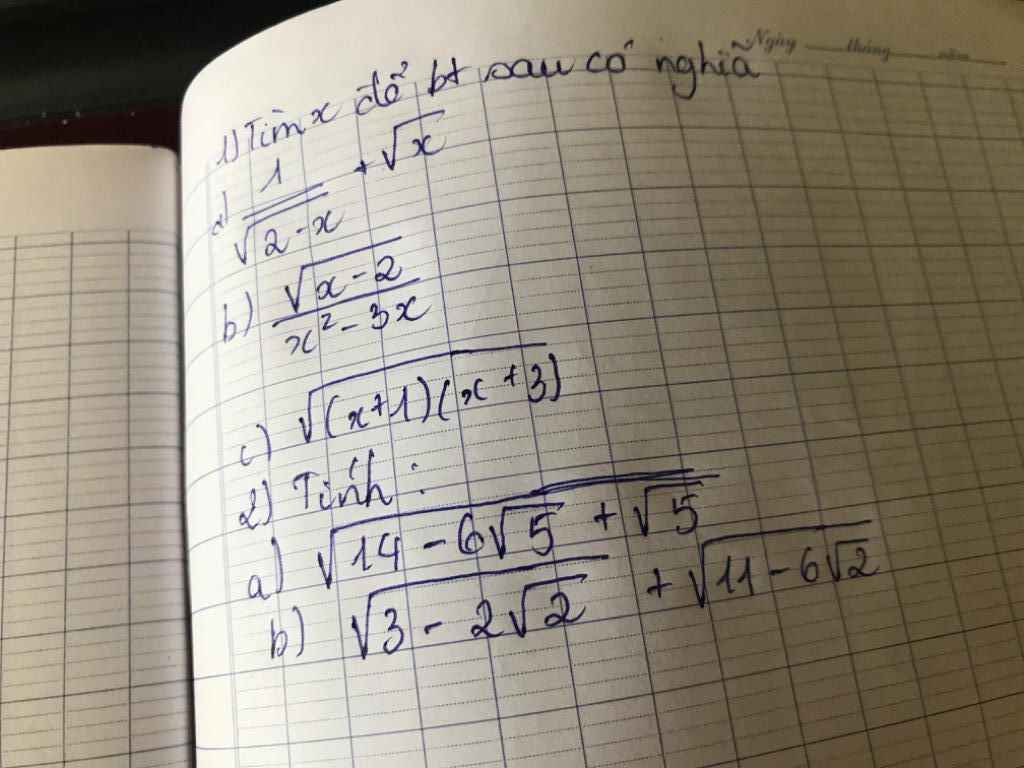 Ngày ........ tháng ........ năm ........
1) Tìm x để bt sau có nghĩa
a) \frac{1}{\sqrt{2-x}} + \sqrt{x}
b) \frac{\sqrt{x-2}}{x^2-3x}
c) \sqrt{(x+1)(x+3)}
2) Tính :
a) \sqrt{14-6\sqrt{5}+\sqrt{5}}
b) \sqrt{3-2\sqrt{2}} + \sqrt{11-6\sqrt{2}}